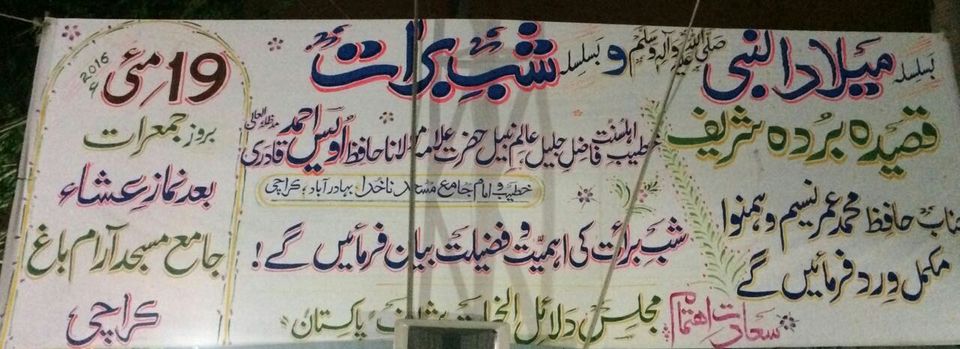 بسلسلہ میلاد النبی صلی اللہ علیہ وآلہ وسلم و بسلسلہ شب برات
قصیدہ بردہ شریف
جناب حافظ محمد عمر نسیم و ہمنوا
مکمل ورد فرمائیں گے
خطیب اہلسنت فاضل جلیل عالم نبیل حضرت علامہ مولانا حافظ اویس احمد قادری مدظلہ العالی
خطیب و امام جامع مسجد ناخدا بہادر آباد، کراچی
شب برأت کی اہمیت و فضیلت بیان فرمائیں گے!
سعادت اہتمام مجلس دلائل الخیرات شریف پاکستان
19 مئی 2016ء
بروز جمعرات
بعد نماز عشاء
جامع مسجد آرام باغ
کراچی